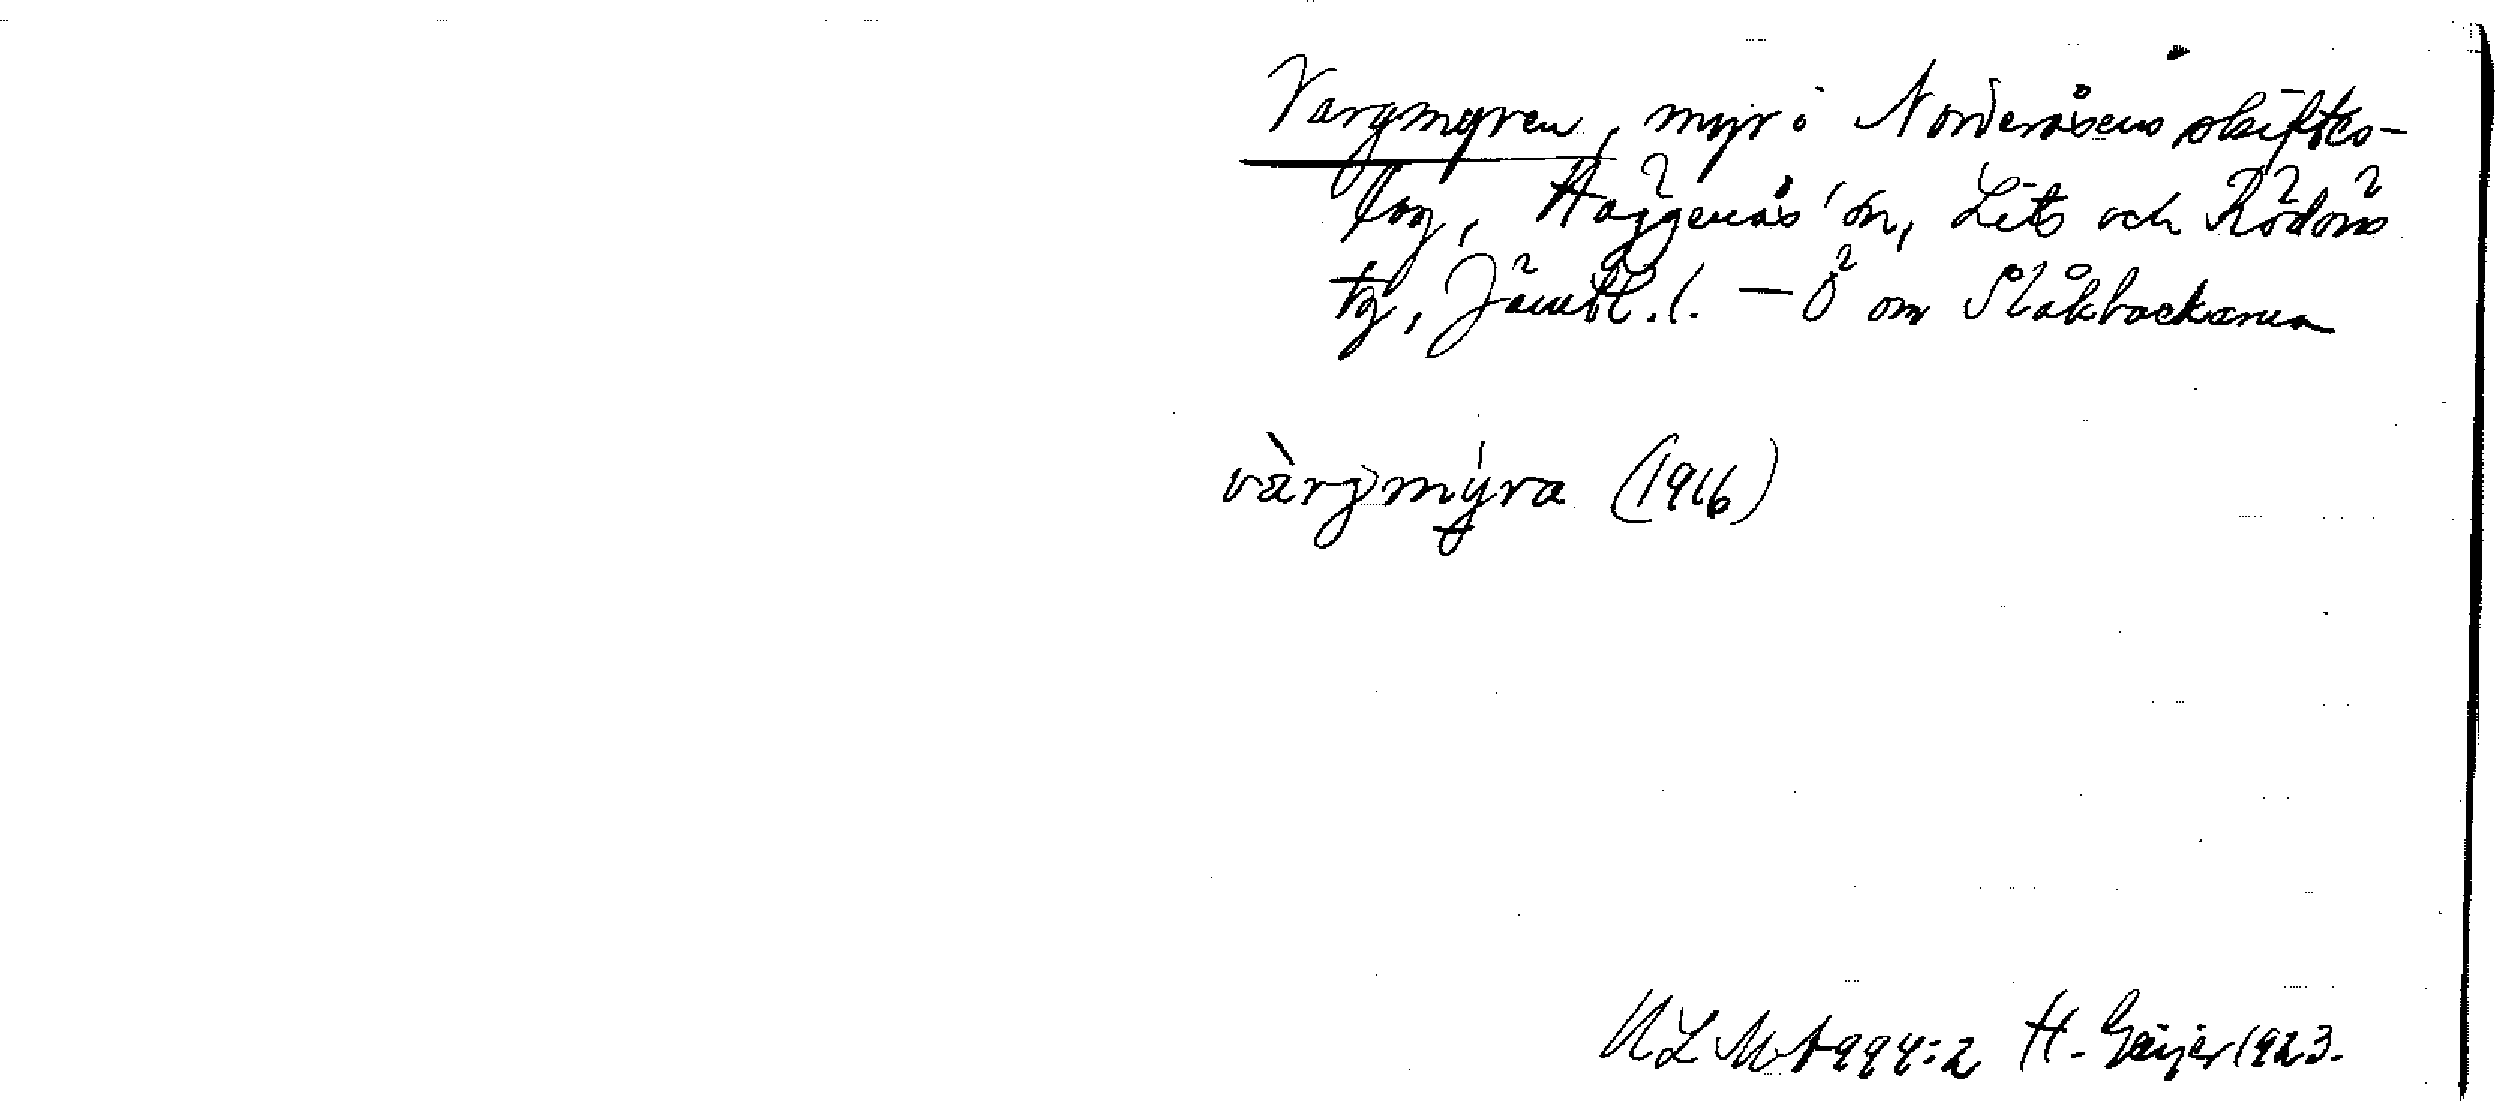 Vargmyren, myr i Norderåsens skiftes-
lag, Häggenås' sn, Lits och Rödöns
tg, Jämtl. l. — Ö om Slåkbackarna
vàrgmýra (1916)
H. Geijer 1923.